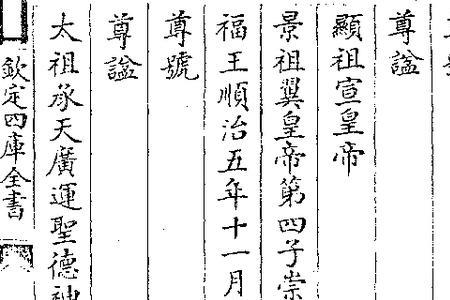 尊諡
顯祖宣皇帝
景祖翼皇帝第四子崇
福王順治五年十一月
尊號
尊諡
太祖承天廣運聖德神
欽定四庫全書